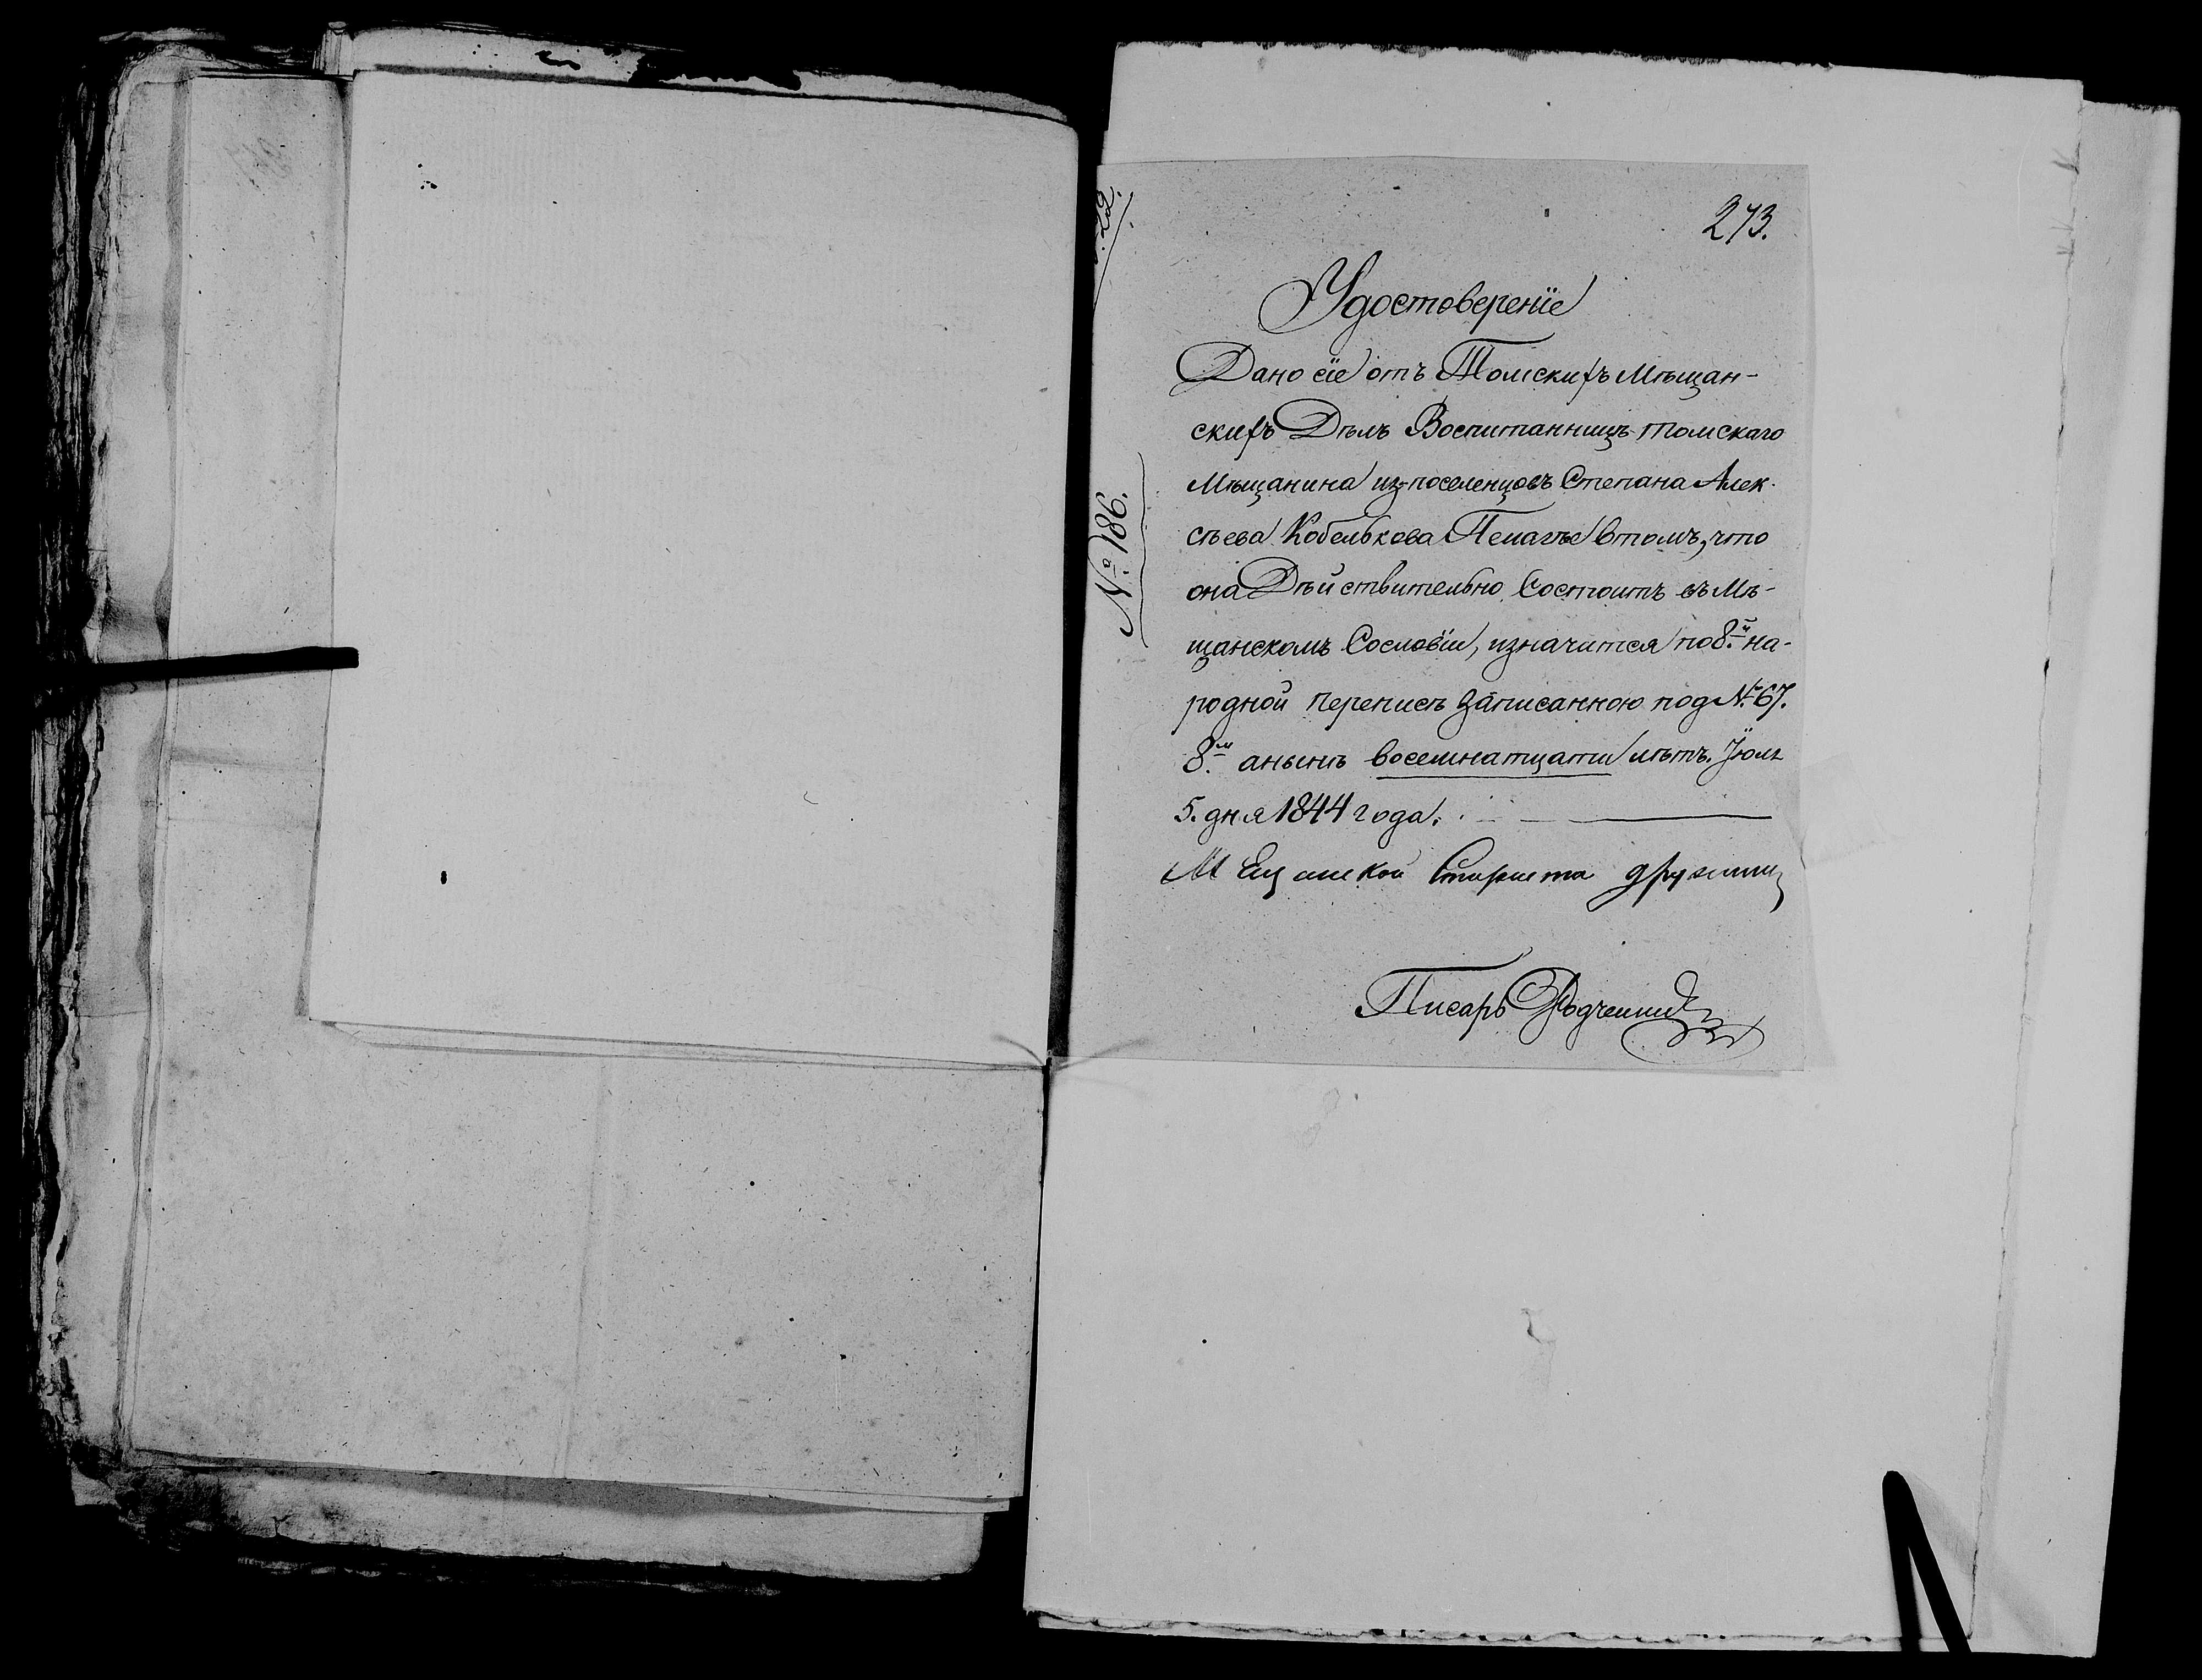 273.
22.
Удостоверенїе
Дано сїе отъ Томскихъ Мѣщан-
скихъ Дѣлъ Воспитанницѣ Томскаго
Мѣщанина изпоселенцовъ Степана Алек-
сѣева Кобелькова Пелагѣе втомъ, что
она Дѣйствительно Состоитъ въ Мѣ-
щанскомъ Сословїи, изначится по 8.й на-
родной переписѣ Записанною под № 67.
8.м анынѣ восемнатцати лѣтъ. Июля
5. дня 1844 года.
№ 186.
М Ещанской Староста
Писарь